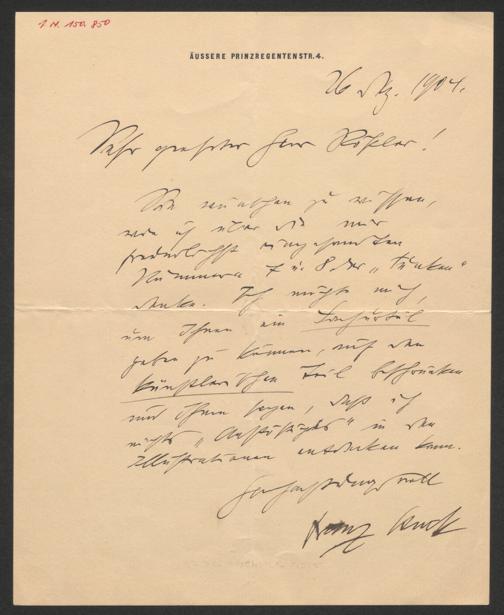 I N. 150.850
ÄUSSERE PRINZREGENTENSTR. 4.
26 Dez. 1904.
Sehr geehrter Herr Rößler!
Sie wünschen zu wissen,
wie ich über die mir
freundlichst eingesandten
Nummern 7 u. 8 der „Funken"
denke. Ich möchte mich,
um Ihnen ein Fachurteil
geben zu können, auf den
künstlerischen Teil beschränken
und Ihnen sagen, daß ich
nichts „Anstößiges" in den
Illustrationen entdecken kann.
Hochachtungsvoll
Franz Stuck